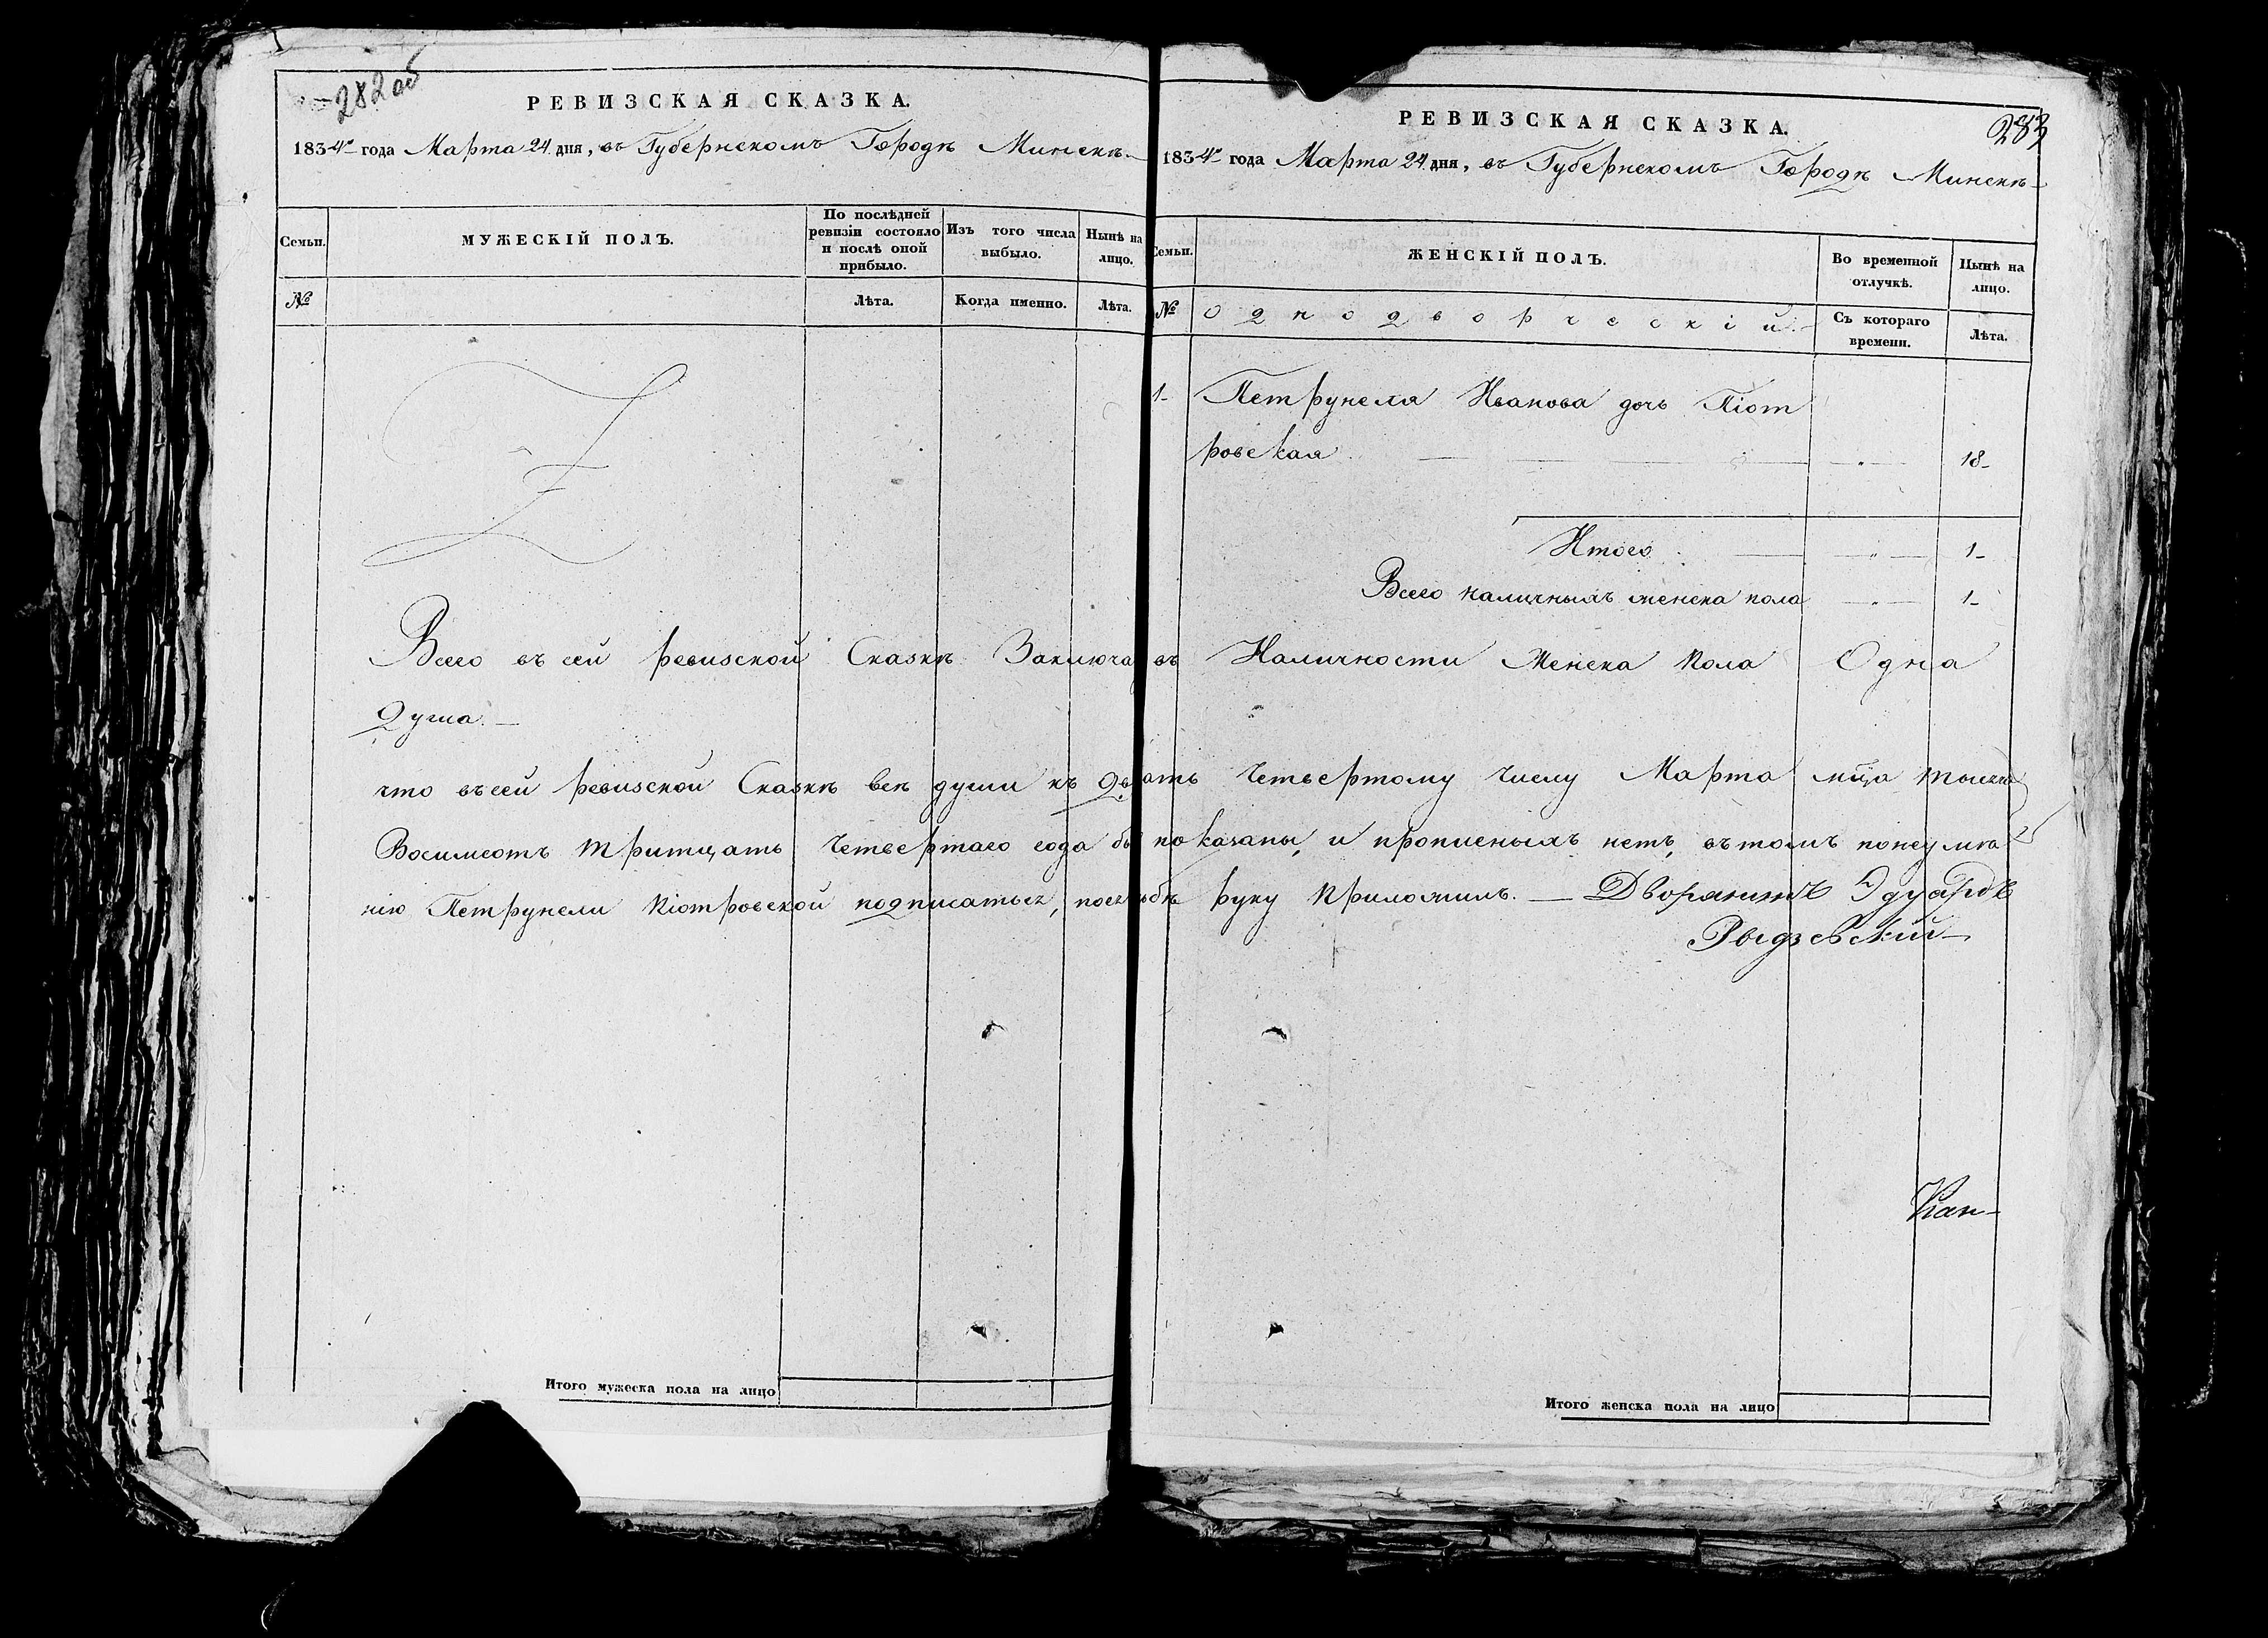 282 об
РЕВИЗСКАЯ СКАЗКА.
1834 года Марта 24 дня, въ Губернскомъ Городѣ Минскѣ
Семьи.
МУЖЕСКІЙ ПОЛЪ.
По послѣдней ревизіи состояло и послѣ оной прибыло.
Изъ того числа выбыло.
Нынѣ на лицо.
№
Лѣта.
Когда именно.
Лѣта.
Всего въ сей ревизской Сказкѣ Заключа
Душа.
что въ сей ревизской Сказкѣ всѣ души къ Дв
Восимсотъ тритцать четвертаго года
нію Петрунели Піотровской подписаться,
Итого мужеска пола на лицо
283
РЕВИЗСКАЯ СКАЗКА.
1834 года Марта 24 дня, въ Губернскомъ Городѣ Минскѣ
Семьи.
ЖЕНСКІЙ ПОЛЪ.
Во временной отлучкѣ.
Нынѣ на лицо.
№
Однодворческій
Съ котораго времени.
Лѣта.
1 Петрунеля Иванова дочь Піот
ровская 18
Итого 1
Всего наличныхъ женска пола 1
въ Наличности Женска пола Одна
ать четвертому числу Марта мца тысяча
показаны, и прописныхъ нетъ, въ томъ понеумѣ
руку приложилъ. — Дворянинъ Эдуардъ
Рыдзевскій
Кан-
Итого женска пола на лицо